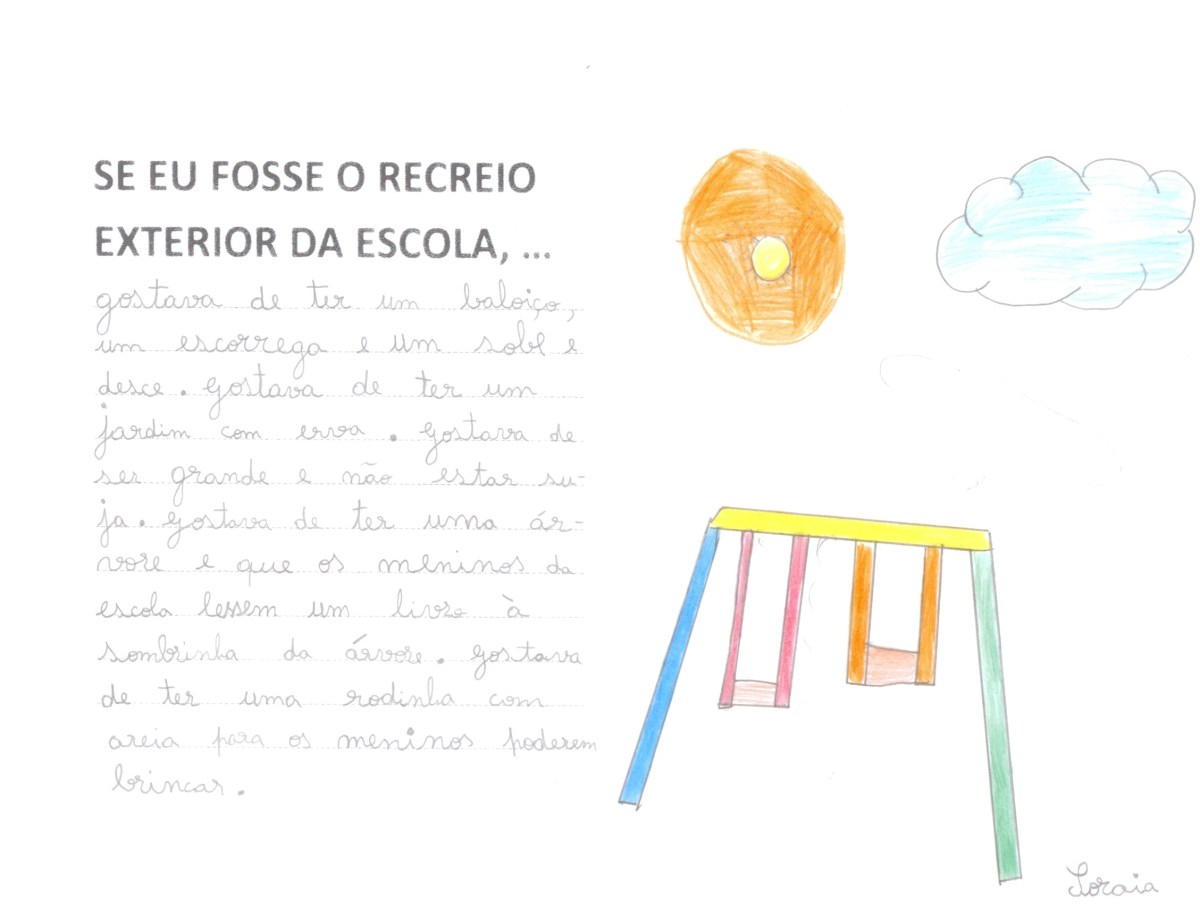 SE EU FOSSE O RECREIO
EXTERIOR DA ESCOLA, ...
gostava de ter um baloiço,
um escorrega e um sobe e
desce. Gostava de ter um
jardim com erva. Gostava de
ser grande e não estar su-
ja. Gostava de ter uma ár-
vore e que os meninos da
escola lessem um livro à
sombrinha da árvore. Gostava
de ter uma rodinha com
areia para os meninos poderem
brincar.
Soraia